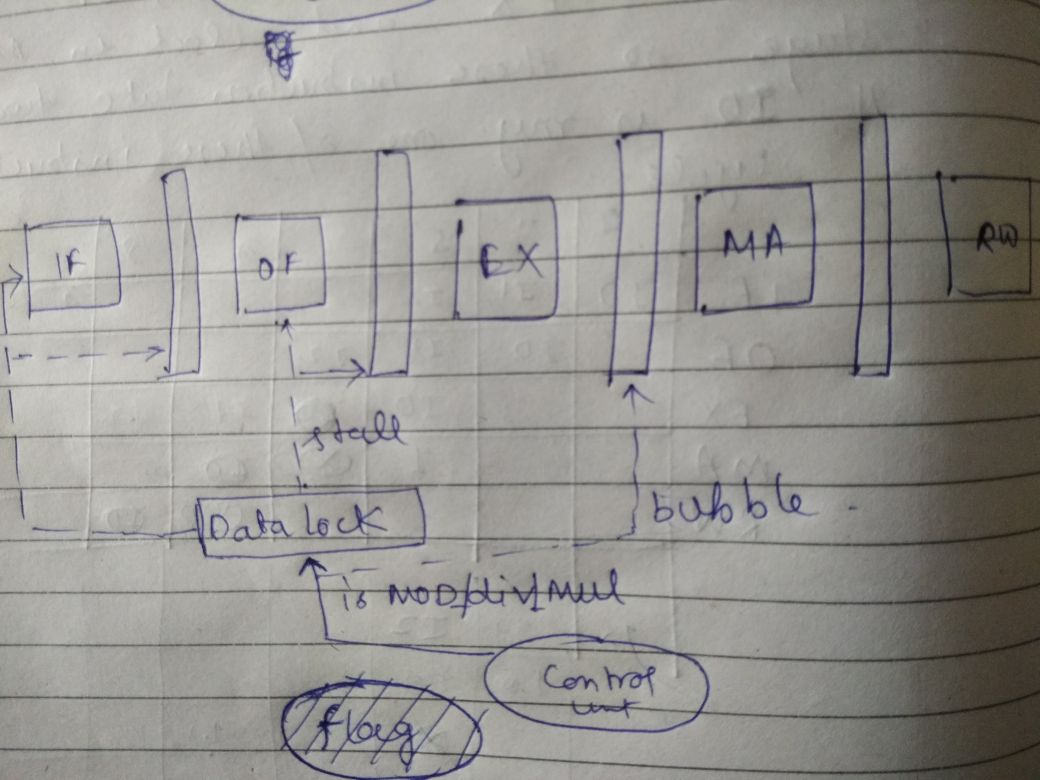 IF
OF
EX
MA
RW
stall
Data lock
bubble
is MOD/div/Mul
Control
unit
flag